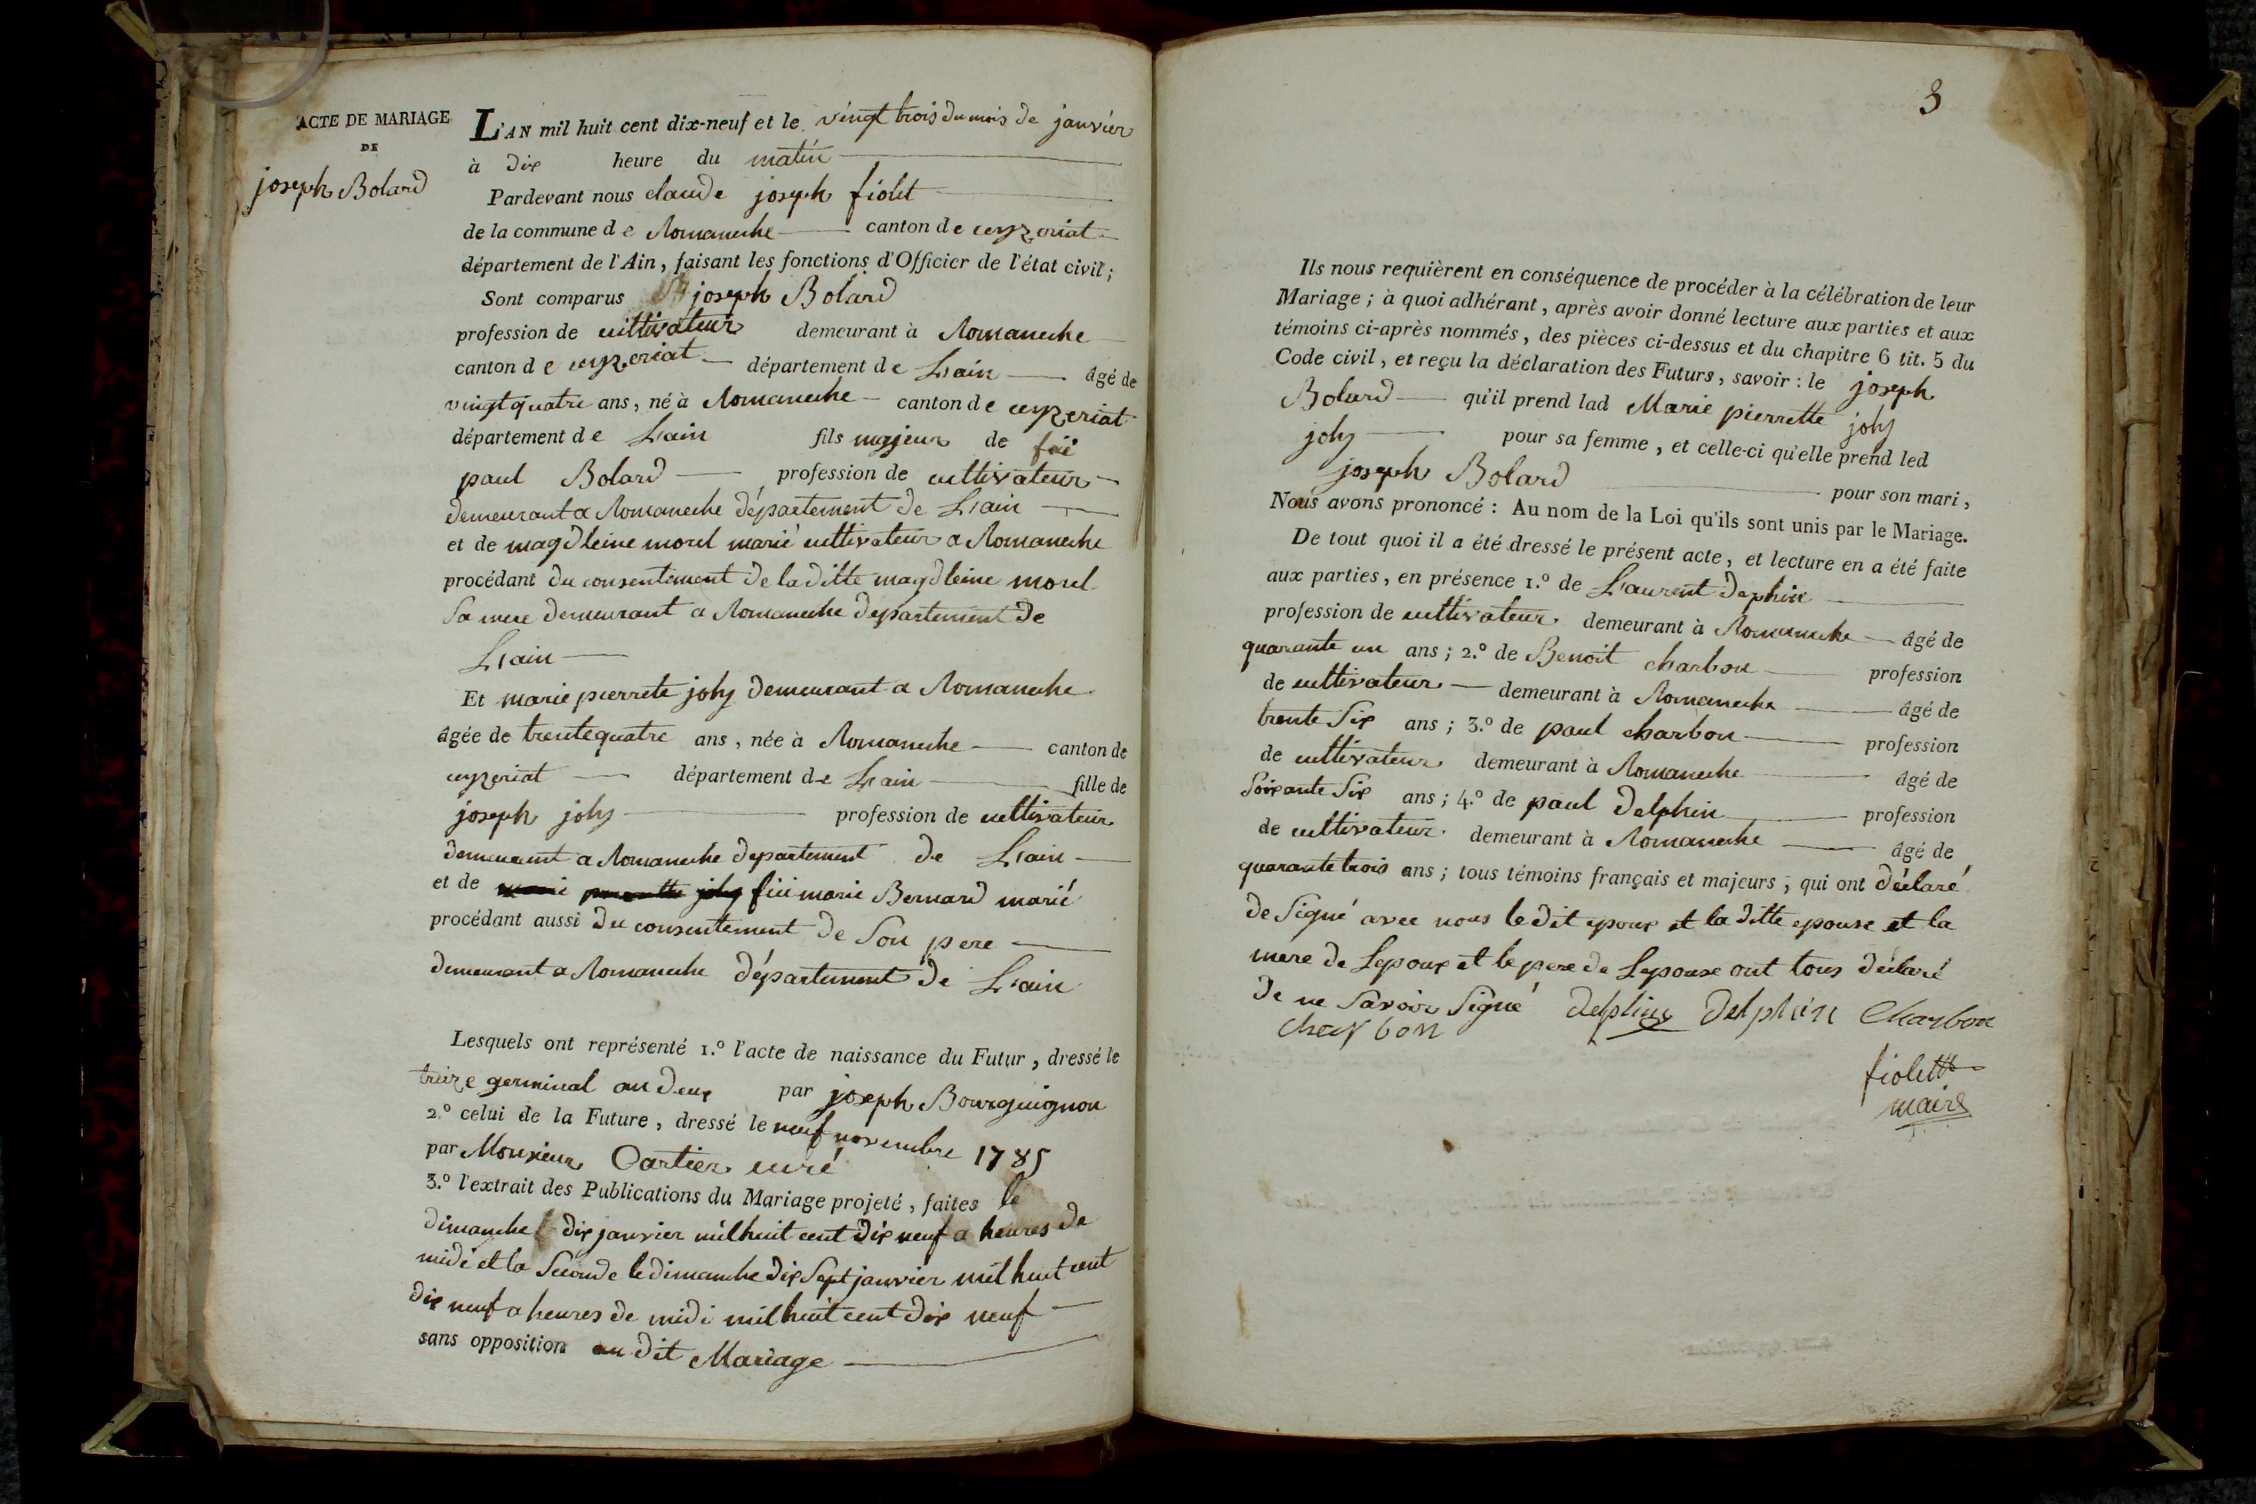 ACTE DE MARIAGE
DE
joseph Bolard
L'AN mil huit cent dix-neuf et le vingt trois du mois de janvier
à dix heure du matin
Pardevant nous claude joseph fiolet
de la commune de Romaneche canton de ceyzeriat
département de l'Ain, faisant les fonctions d'Officier de l'état civil;
Sont comparus joseph Bolard
profession de cultivateur demeurant à Romaneche
canton de ceyzeriat département de Lain âgé de
vingt quatre ans, né à Romaneche canton de ceyzeriat
département de Lain fils majeur de feü
paul Bolard profession de cultivateur
demeurant a Romaneche département de Lain
et de magdleine morel marié cultivateur a Romaneche
procédant du consentiment de la ditte magdleine morel
Sa mere demeurant a Romaneche departement de
Lain
Et marie pierrete joly demeurant a Romaneche
âgée de trente quatre ans, née à Romaneche canton de
ceyzeriat département de Lain fille de
joseph joly profession de cultivateur
demeurant a Romaneche departement de Lain
et de marie joly marie Bernard marié
procédant aussi du consentement de Son pere
demeurant a Romaneche département de Lain
Lesquels ont représenté 1.° l'acte de naissance du Futur, dressé le
treize germinal an deux par joseph Bourguignon
2.° celui de la Future, dressé le neuf novembre 1785
par Monsieur Cartier curé
3.° l'extrait des Publications du Mariage projeté, faites le
dimanche dix janvier mil huit cent dix neuf a heures de
midi et la Seconde le dimanche dix Sept janvier mil huit cent
dix neuf a heures de midi mil huit cent dix neuf
sans opposition au dit Mariage
3
Ils nous requièrent en conséquence de procéder à la célébration de leur
Mariage; à quoi adhérant, après avoir donné lecture aux parties et aux
témoins ci-après nommés, des pièces ci-dessus et du chapitre 6 tit. 5 du
Code civil, et reçu la déclaration des Futurs, savoir: le joseph
Bolard qu'il prend lad Marie pierrette joly
joly pour sa femme, et celle-ci qu'elle prend led
joseph Bolard pour son mari,
Nous avons prononcé: Au nom de la Loi qu'ils sont unis par le Mariage.
De tout quoi il a été dressé le présent acte, et lecture en a été faite
aux parties, en présence 1.° de Laurent dephin
profession de cultivateur demeurant à Romaneche âgé de
quarante un ans; 2.° de Benoit charbon profession
de cultivateur demeurant à Romaneche âgé de
trente Six ans; 3.° de paul charbon profession
de cultivateur demeurant à Romaneche âgé de
Soixante Six ans; 4.° de paul delphin profession
de cultivateur demeurant à Romaneche âgé de
quarante trois ans; tous témoins français et majeurs, qui ont déclaré
de Signé avec nous le dit epoux et la ditte epouse et la
mere de Lepoux et le pere de Lepouse ont tous déclaré
de ne Savoir Signé delphin Delphin Charbon
charbon
fiolett
maire